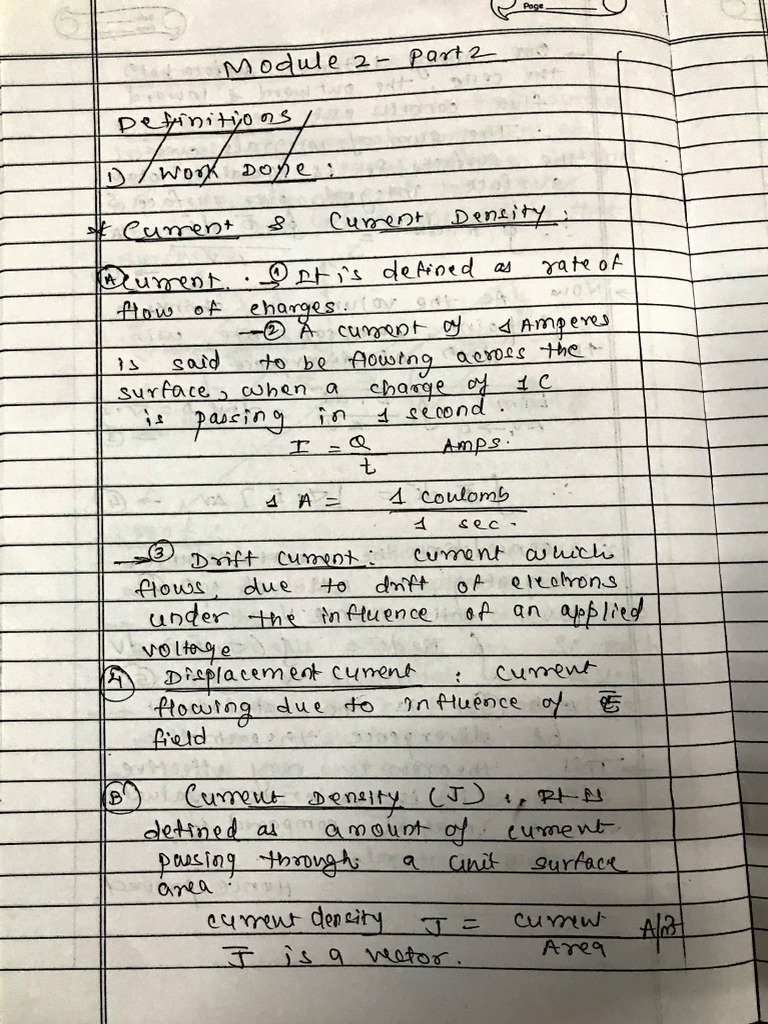 Page
Module 2 - Part 2
Definitions
1) Work Done :
* Current & Current Density :
(A) Current : → ① It is defined as rate of
flow of charges.
→ ② A current of 1 Amperes
is said to be flowing across the
surface, when a charge of 1 C
is passing in 1 second.
I = Q/t Amps.
1 A = 1 coulomb / 1 sec.
→ ③ Drift current : current which
flows, due to drift of electrons
under the influence of an applied
voltage
④ Displacement current : current
flowing due to influence of E̅
field
(B) Current Density (J) : It is
defined as amount of current
passing through a unit surface
area.
current density J = current / Area A/m²
J̅ is a vector.